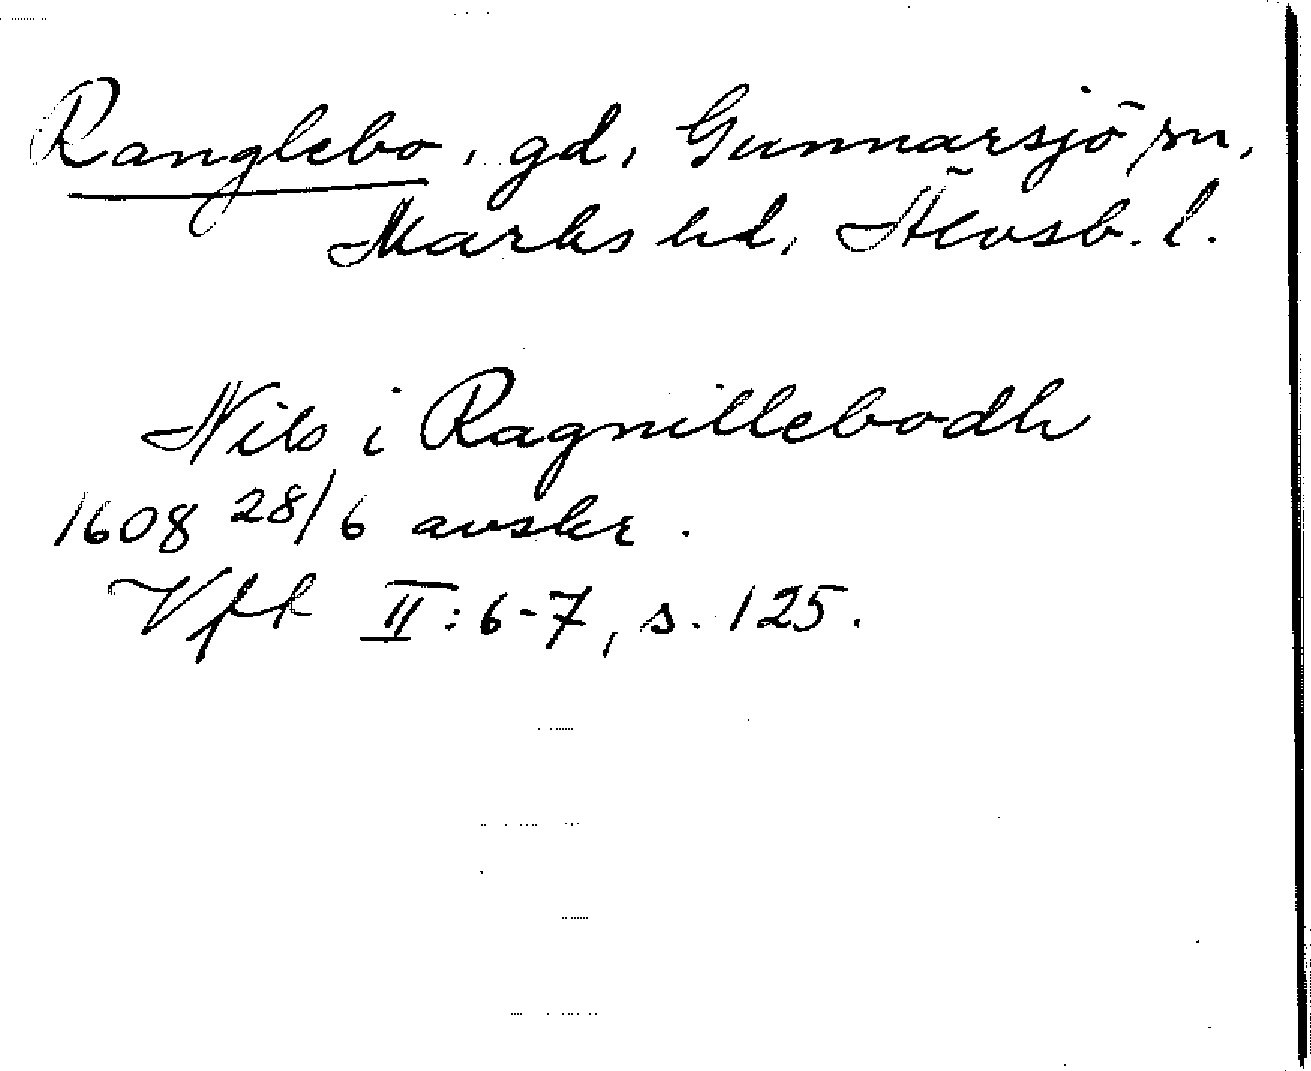 Ranglebo, gd, Gunnarsjö sn,
Marks hd, Älvsb. l.
Nils i Ragnillebodh
1608 28/6 avskr.
Vfk II: 6-7, s. 125.